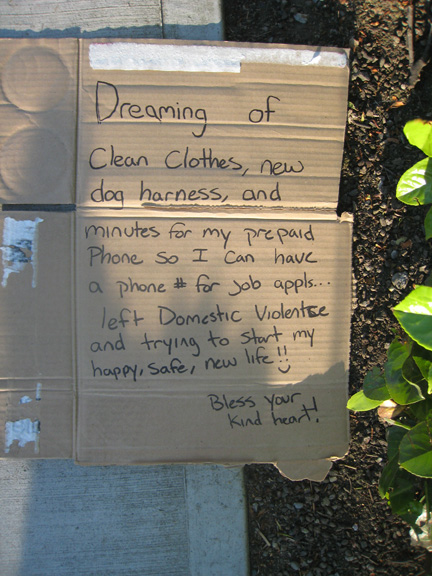 Dreaming of
Clean Clothes, new
dog harness, and
minutes for my prepaid
Phone so I Can have
a phone # for job appls...
left Domestic Violence
and trying to start my
happy, safe, new life!!
Bless your
kind heart!